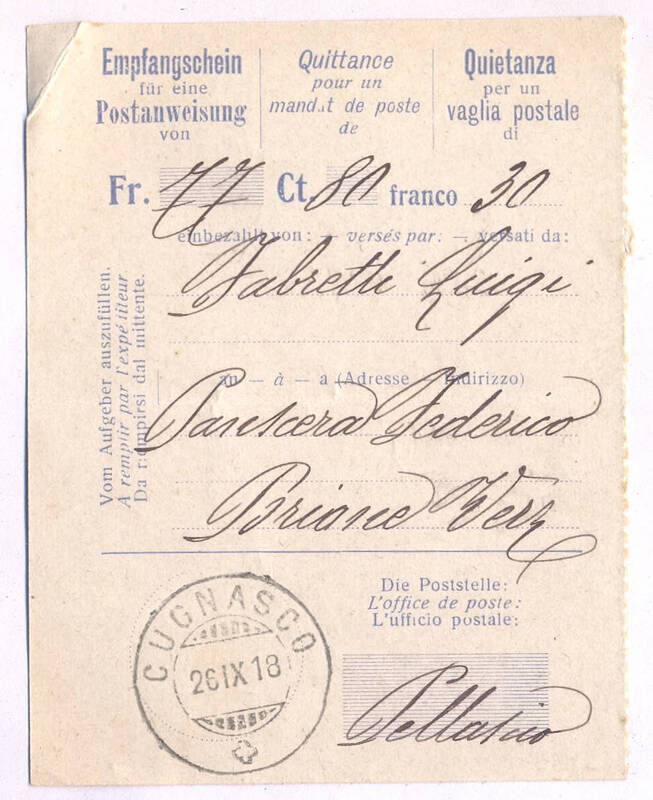 Empfangschein
für eine
Postanweisung
von
Quittance
pour un
mandat de poste
de
Quietanza
per un
vaglia postale
di
Fr. 77 Ct. 80 franco 30
einbezahlt von: — versés par: — versati da:
Fabretti Luigi
an — à — a (Adresse — Indirizzo)
Panscera Federico
Brione Verz
Vom Aufgeber auszufüllen.
A remplir par l'expéditeur
Da riempirsi dal mittente.
Die Poststelle:
L'office de poste:
L'ufficio postale:
CUGNASCO
26 IX 18